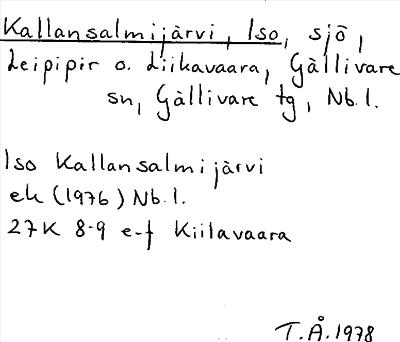 Kallansalmijärvi, Iso, sjö,
Leipipir o. Liikavaara, Gällivare
sn, Gällivare tg, Nb.l.
Iso Kallansalmijärvi
ek (1976) Nb.l.
27K 8-9 e-f Kiilavaara
T.Å. 1978